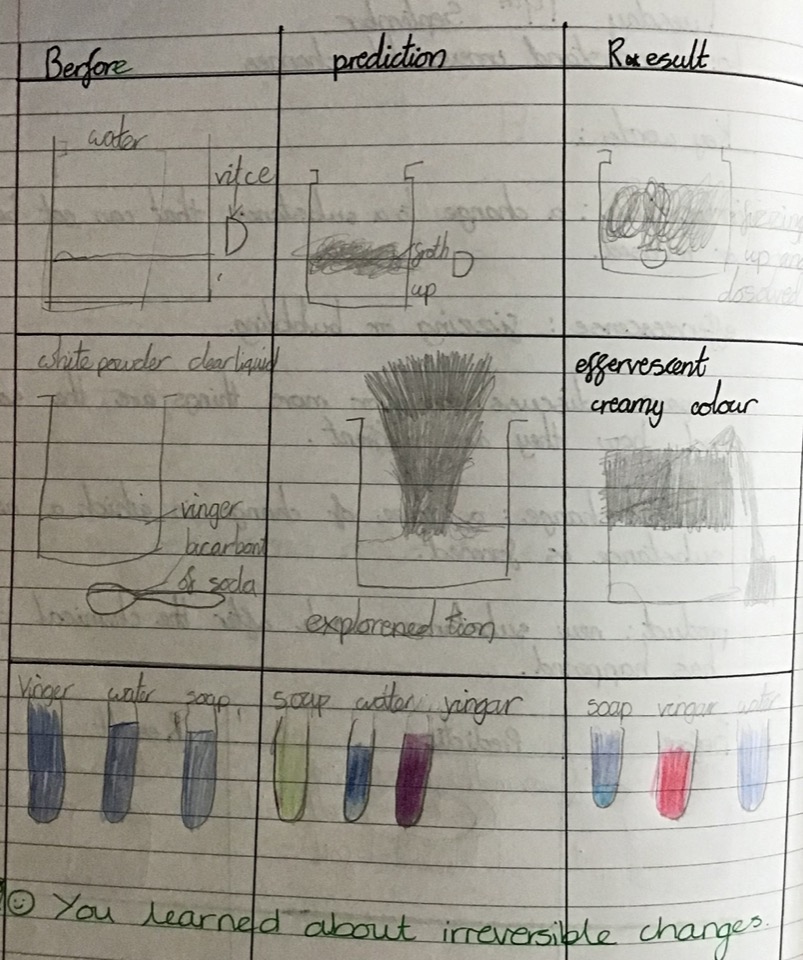 Berfore prediction Result
water
vitce
D
froth D
up
fizzing
up and
white powder clear liquid
vinger
bicarbont
of soda
explorenedtion
effervescent
creamy colour
Vinger water soap
soap water vingar
soap vingar water
You learned about irreversible changes.